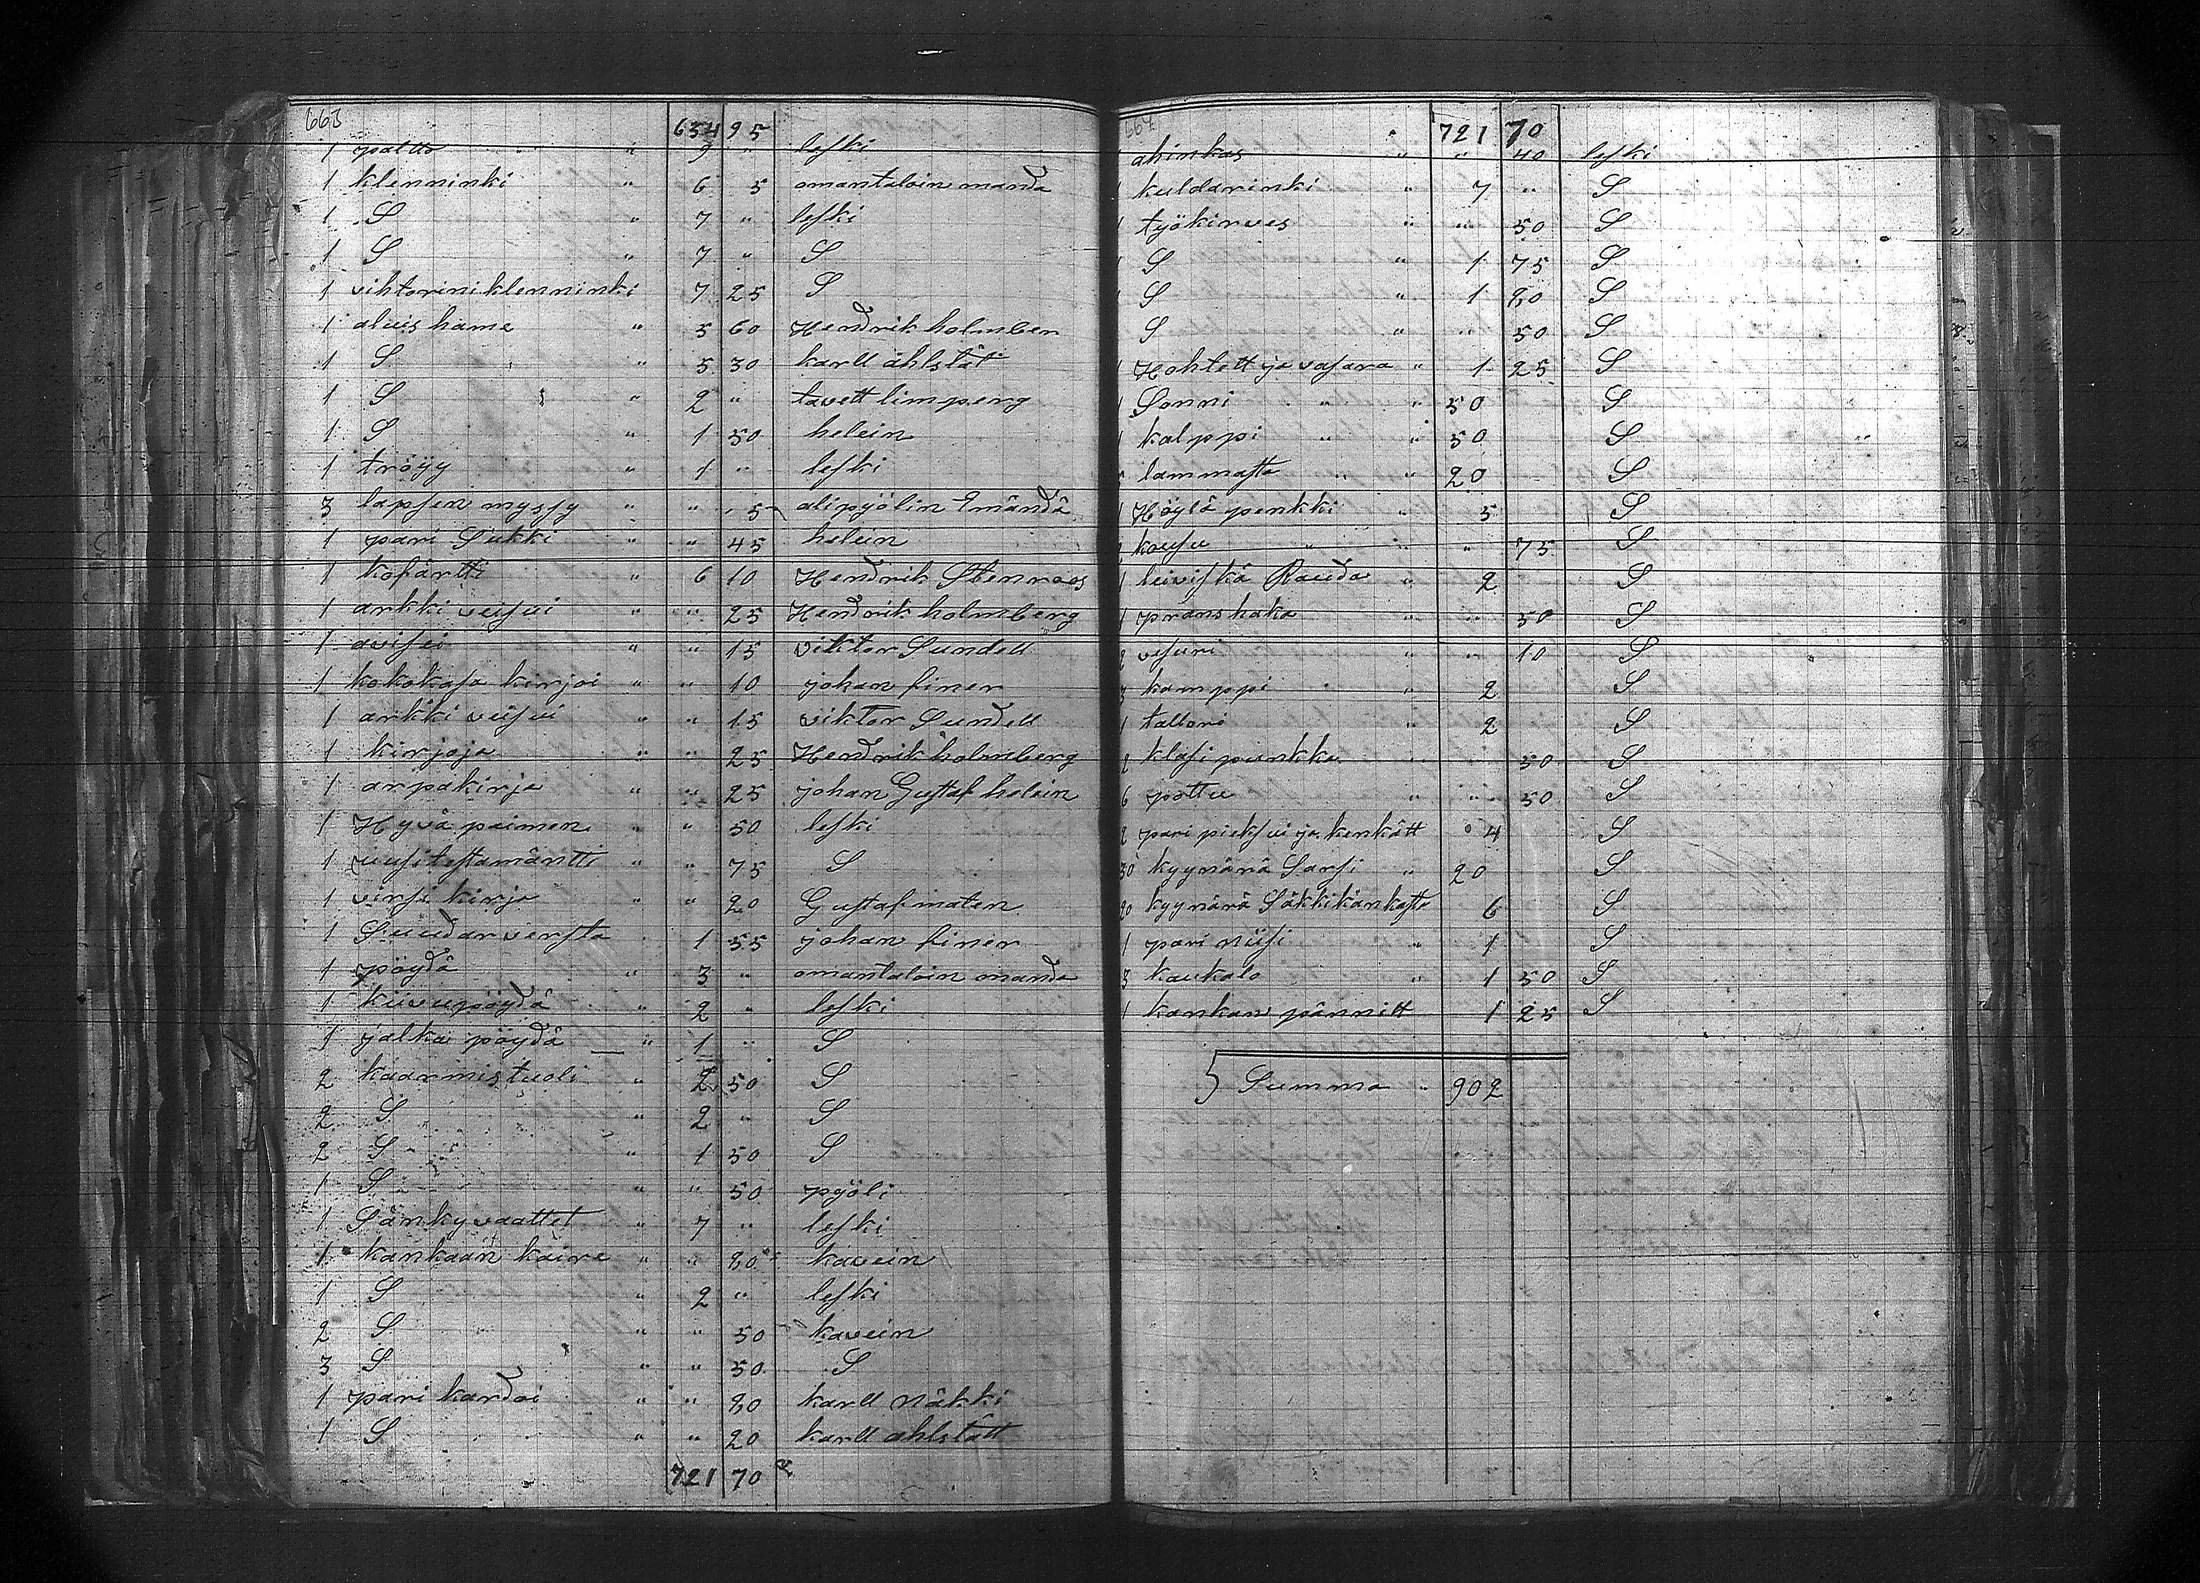 663
654 95
1 paltto " 9 " lefki
1 klenninki " 6 5 omantaloin manda
1 S " 7 " lefki
1 S " 7 " S
1 vihtoriniklenninki 7 25 S
1 aluis hame " 5 60 Hendrik holmber
1 S " 5 30 karll åhlstât
1 S " 2 " tavett limperg
1 S " 1 50 helein
1 tröyy " 1 " lefki
3 lapsen myssy " " 5 alipyölin Emândâ
1 pari Sukki " " 45 helein
1 kofärtti " 6 10 Hendrik Stenroos
1 arkki veisui " " 25 Hendrik holmberg
1 avisei " " 15 viktor Sundell
1 kokokasa kirjoi " " 10 johan finer
1 arkki viisui " " 15 viktor Sundell
1 kirjoja " " 25 Hendrik holmberg
1 arpakirja " " 25 johan Gustaf helein
1 Hyvä paimen " " 50 lefki
1 uusitestamäntti " " 75 S
1 virsi kirja " " 20 Gustaf maten
1 Suudarversta 1 55 johan finer
1 pöydä " 3 " omantaloin manda
1 kuvupöydä " 2 " lefki
1 jalka pöydä " 1 " S
2 kaarmistuoli " 2 50 S
2 S " 2 " S
2 S " 1 50 S
1 S " " 50 pyöli
1 Sänkyvaattet " 7 " lefki
1 kankaan kaire " " 80 kavein
1 S " 2 " lefki
2 S " " 50 kavein
3 S " " 50 S
1 pari kardoi " " 80 karll Näkki
1 S " " 20 karll ahlstätt
721 70
664
721 70
1 ahinkas " " 40 lefki
1 kuldarinki " 7 " S
1 työkirves " " 50 S
1 S " 1 75 S
1 S " 1 80 S
1 S " " 50 S
1 Hohtett ja vasara " 1 25 S
1 Sonni " " 50 S
1 kalppi " " 50 S
lammasta " " 20 S
1 Höylä penkki " 5 S
kousu " " " 75 S
1 leiviskä Rauda " 2 S
1 pranshaka " " 50 S
2 vesuri " " 10 S
3 kamppi " 2 S
1 tallari " 2 S
2 klasi punkka 50 S
6 pottu " " 50 S
2 pari pieksui ja kenkätt " 4 S
30 kyynärä Sarsi " 20 S
20 kyynärä Säkkikänkasta 6 S
1 pari niisi " 1 S
3 kaukalo " 1 50 S
1 kankan pännitt 1 25 S
S Summa " 902